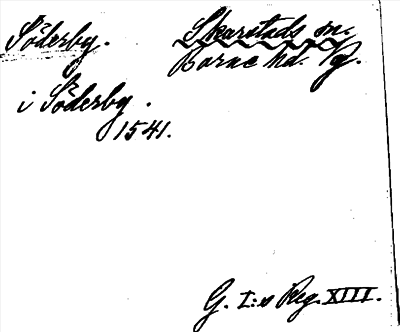 Söderby. Skarstads sn.
Barne hd. Vg.
i Söderby.
1541.
G. I:s Reg. XIII.